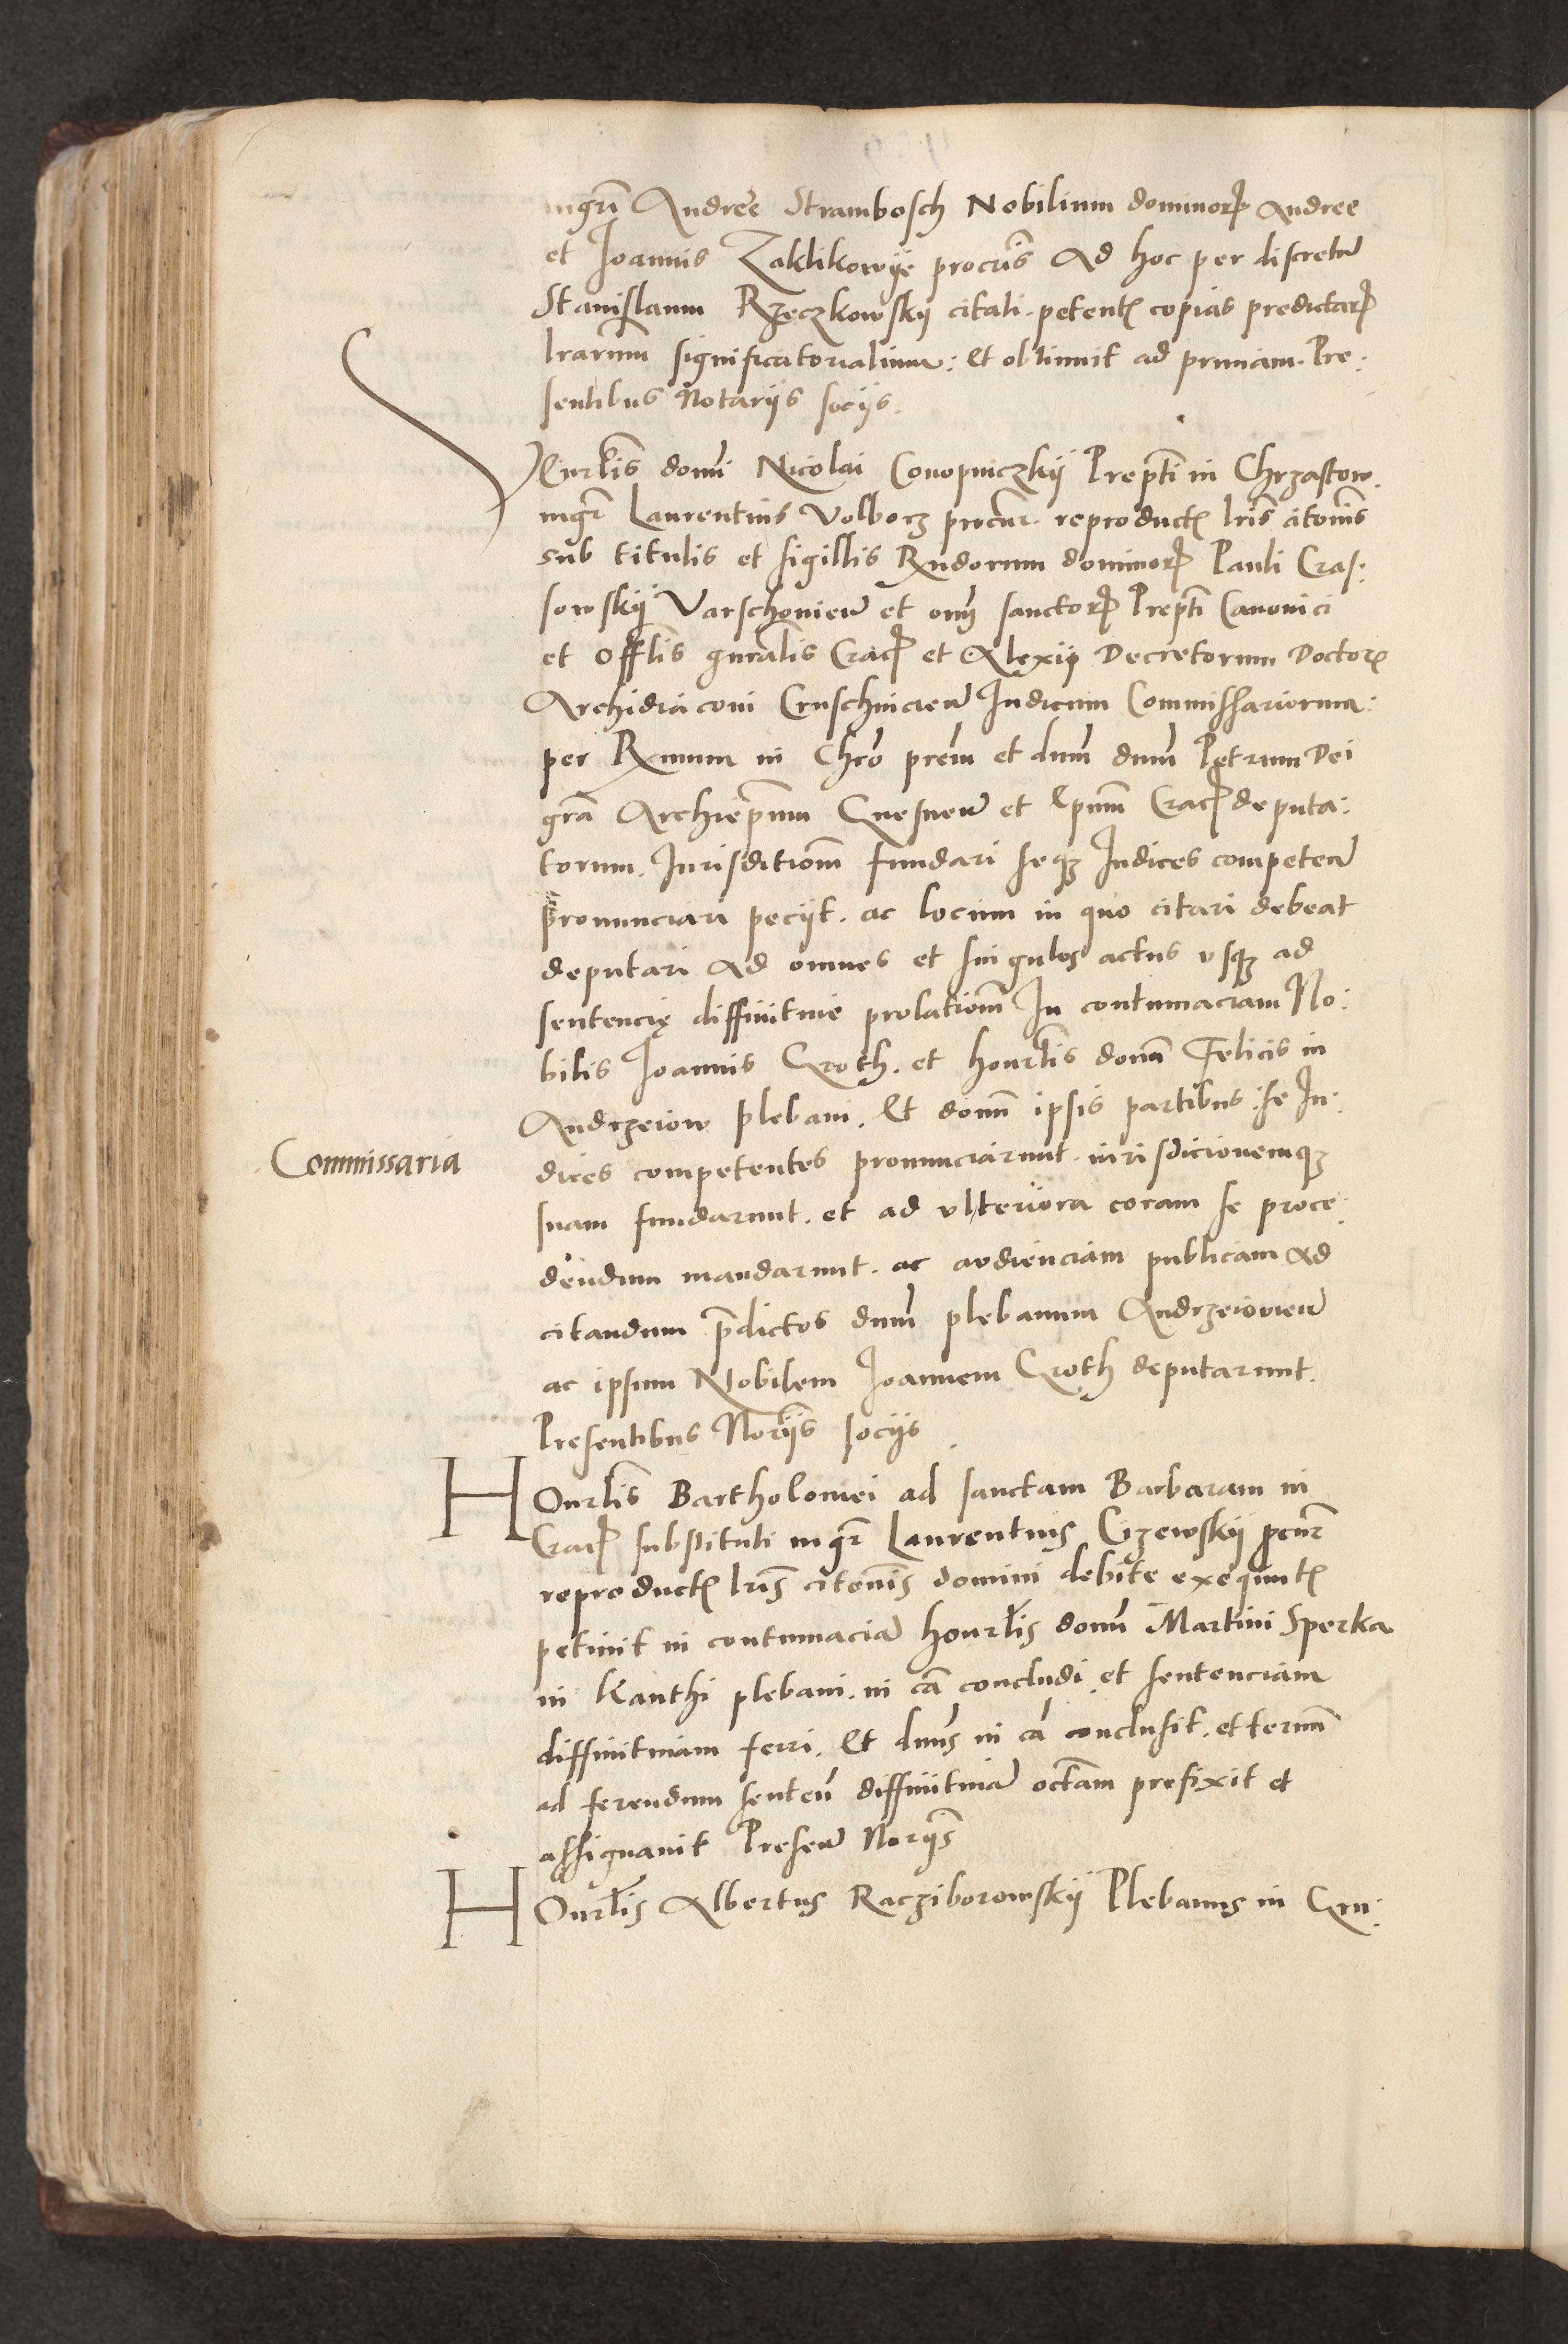 mgri Andree Strambosch Nobilium dominorꝝ Andree
et Joannis Zaklikowye procuris Ad hoc per discretu
Stanislaum Rzeczkowsky citati. petentꝭ copias predictarꝝ
lrarum significatorialium: Et obtinuit ad primam. Pre:
sentibus Notariis sociis.
Venrlis domi Nicolai Conopniczky Prepti in Chrzastow.
mgr Laurentius Volborz procur. reproductꝭ lris citonis
sub titulis et sigillis Rndorum dominorꝝ Pauli Cras:
sowsky Varschovien et omj sanctorꝝ Prepti Canonici
et Offlis gnralis Cracꝝ et Alexii Decretorum Doctorꝭ
Archidiaconi Cruschvicien Judicum Commissariorum:
per Rmum in Chro prem et dnm dnm Petrum Dei
gra Archiepum Gnesnen et Epum Cracꝝ deputa:
torum. Jurisditiom fundari seqꝫ Judices competen
pronunciari peciit. ac locum in quo citari debeat
deputari Ad omnes et singulos actus vsqꝫ ad
sentencię diffinitiue prolatiom In contumaciam No:
bilis Joannis Groth. et honrlis domi Felicis in
Andrzeiow plebani. Et domi ipsis partibus: se Ju:
dices competentes pronunciarunt. iurisdicionemqꝫ
suam fundarunt. et ad vlteriora coram se proce:
dendum mandarunt. ac audienciam publicam Ad
citandum pdictos dnm plebanum Andrzeiovien
ac ipsum Nobilem Joannem Groth deputarunt.
Presentibus Noriis sociis.
HOnrlis Bartholomei ad sanctam Barbaram in
Cracꝝ substituti mgr Laurentius Cizewsky pcur
reproductꝭ lris citonis domini debite exequutꝭ
petiuit in contumacia honrlis domi Martini Sperka
in Kanthi plebani. in ca concludi et sentenciam
diffinitiuam ferri. Et dnus in ca conclusit. et termi
ad ferendum senten diffinitiua octam prefixit et
assignauit Presen Noriis
HOnrlis Albertus Racziborowsky Plebanus in Gru:
Commissaria